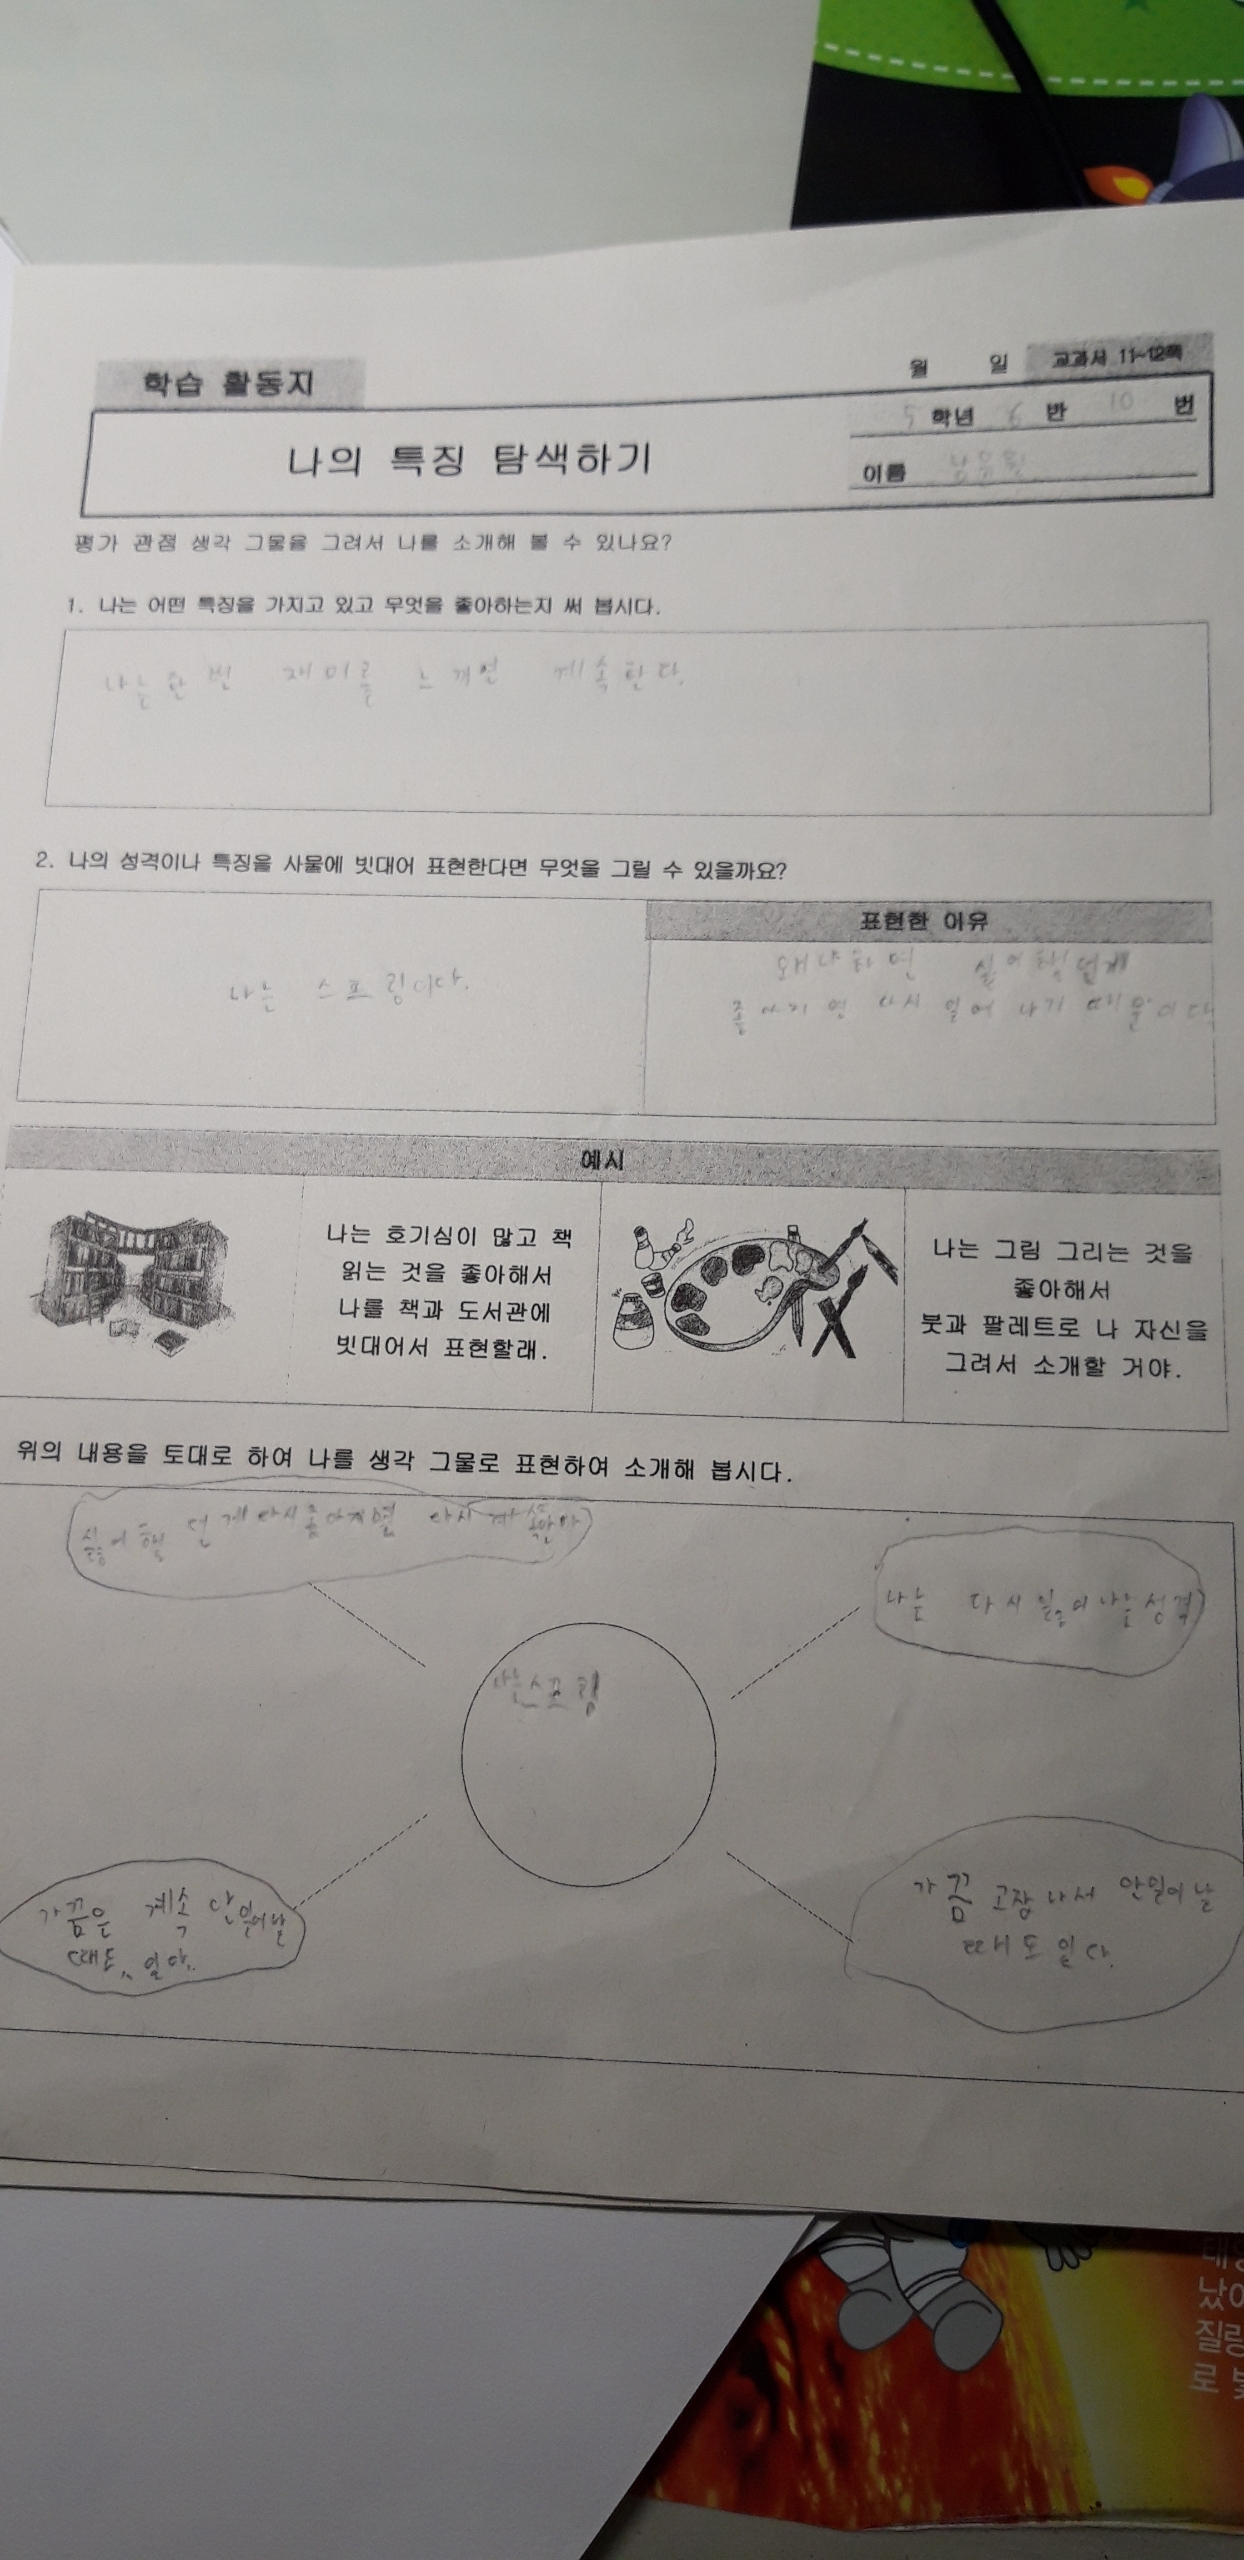 월 일 교과서 11~12쪽
학습 활동지
5 학년 반 10 번
나의 특징 탐색하기
이름
평가 관점 생각 그물을 그려서 나를 소개해 볼 수 있나요?
1. 나는 어떤 특징을 가지고 있고 무엇을 좋아하는지 써 봅시다.
나는 한 번 재미를 느끼면 계속한다.
2. 나의 성격이나 특징을 사물에 빗대어 표현한다면 무엇을 그릴 수 있을까요?
표현한 이유
왜냐하면 실어했던게
나는 스프링이다.
좋아지면 다시 일어나기 때문이다
예시
나는 호기심이 많고 책
읽는 것을 좋아해서
나를 책과 도서관에
빗대어서 표현할래.
나는 그림 그리는 것을
좋아해서
붓과 팔레트로 나 자신을
그려서 소개할 거야.
위의 내용을 토대로 하여 나를 생각 그물로 표현하여 소개해 봅시다.
던게 다시 좋아지면 다시
나는 다시 일어나는성격
나는스프링
가끔은 계속 안일어날
때도 있다.
가끔 고장나서 안일어날
때도 있다.
태양
났어
질량
로